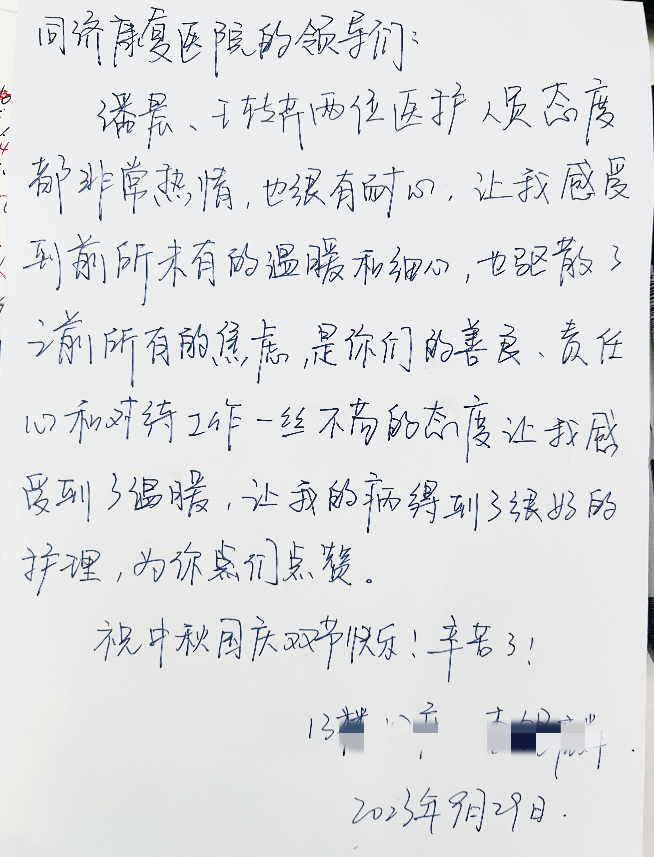 同济康复医院的领导们：
潘晨、王转卉两位医护人员态度
都非常热情，也很有耐心，让我感受
到前所未有的温暖和细心，也驱散了
之前所有的焦虑，是你们的善良、责任
心和对待工作一丝不苟的态度让我感
受到了温暖，让我的病得到了很好的
护理，为你们点赞。
祝中秋国庆双节快乐！辛苦了！
13
2023年9月29日.